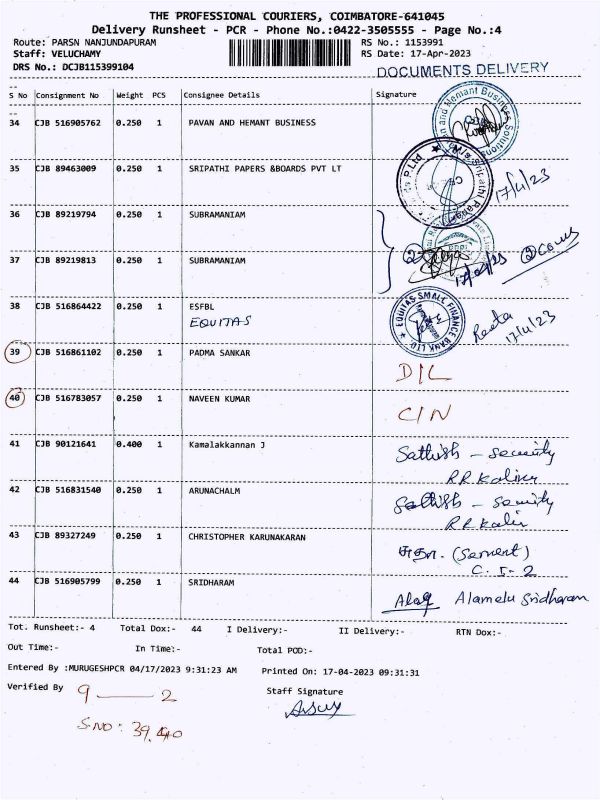 THE PROFESSIONAL COURIERS, COIMBATORE-641045
Delivery Runsheet - PCR - Phone No.:0422-3505555 - Page No.:4
Route: PARSN NANJUNDAPURAM
RS No.: 1153991
Staff: VELUCHAMY
RS Date: 17-Apr-2023
DRS No.: DCJB115399104
DOCUMENTS DELIVERY
S No Consignment No Weight PCS Consignee Details Signature
34 CJB 516905762 0.250 1 PAVAN AND HEMANT BUSINESS
35 CJB 89463009 0.250 1 SRIPATHI PAPERS &BOARDS PVT LT
17/4/23
36 CJB 89219794 0.250 1 SUBRAMANIAM
37 CJB 89219813 0.250 1 SUBRAMANIAM
17/04/23
38 CJB 516864422 0.250 1 ESFBL
EQUITAS
EQUITAS SMALL FINANCE BANK LTD
Reeta
17/4/23
39 CJB 516861102 0.250 1 PADMA SANKAR
D/L
40 CJB 516783057 0.250 1 NAVEEN KUMAR
C/N
41 CJB 90121641 0.400 1 Kamalakkannan J
Sathish - security
42 CJB 516831540 0.250 1 ARUNACHALM
Sathish - security
43 CJB 89327249 0.250 1 CHRISTOPHER KARUNAKARAN
(Servent)
C. I- 2
44 CJB 516905799 0.250 1 SRIDHARAM
Alamelu Sridharam
Tot. Runsheet:- 4 Total Dox:- 44 I Delivery:- II Delivery:- RTN Dox:-
Out Time:- In Time:- Total POD:-
Entered By :MURUGESHPCR 04/17/2023 9:31:23 AM Printed On: 17-04-2023 09:31:31
Verified By
9 — 2
Staff Signature
S.NO: 39,40